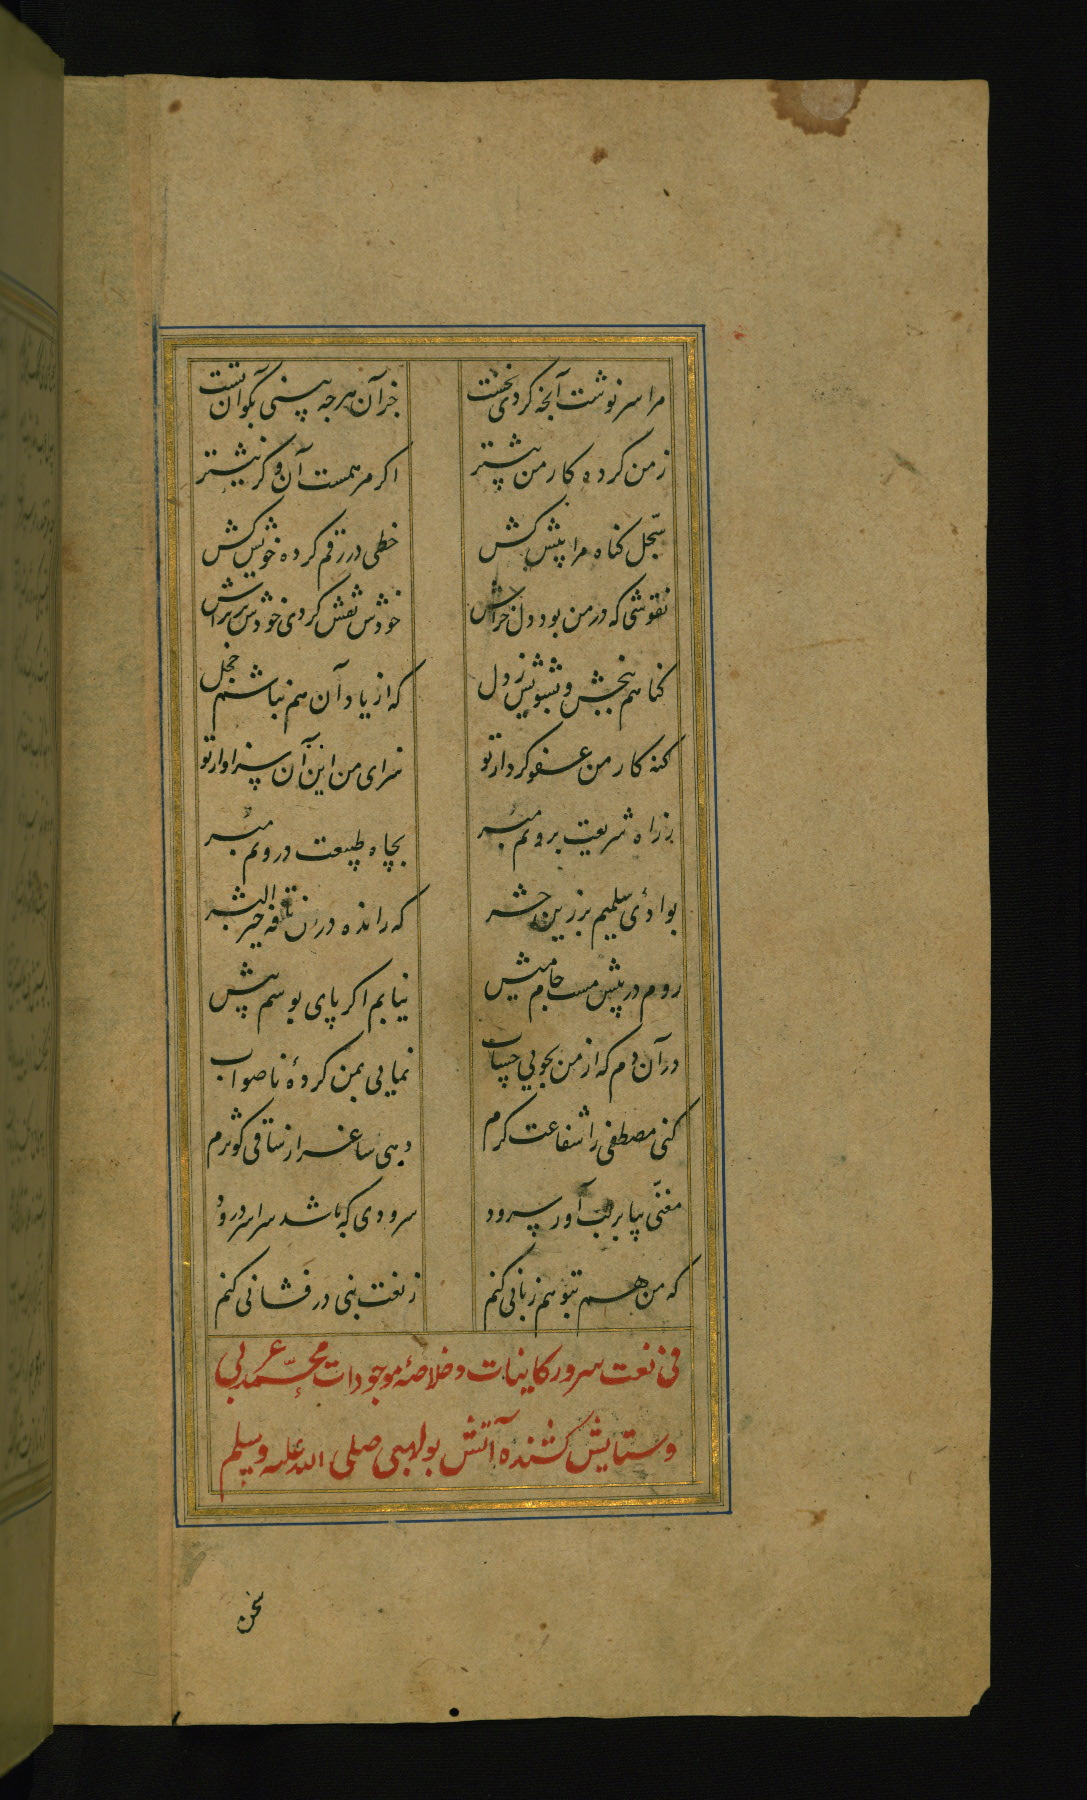 مرا سرنوشت آنچه کردی نخست جز آن هرچه بینی بگو آن تست
ز من کرده کار من بیشتر اگر مرهمست آن وگر نیشتر
سجل کناه مرا پیش کش خطی در رقم کرده خویش کش
نقوشی که در من بود دل خراش خودش نقش کردی خودش بر تراش
کناهم ببخش و بشویش ز دل که از یاد آن هم نباشم خجل
کنه کار من عفو کردار تو سزای من این آن سزاوار تو
ز راه شریعت برونم مبر بچاه طبیعت درونم مبر
بوادی سلیم بر زین حشر که رانده در آن ناقه خیر البشر
روم در پیش مست جامیش نیابم اکر پای بوسم پیش
در آن دم که از من بجویی حساب نمایی بمن کرده ناصواب
کنی مصطفی را شفاعت کرم دهی ساغر از ساقی کوثرم
مغنی بیا بر لب آور سرود سرودی که باشد سراسر درود
که من هم بتو هم زبانی کنم ز نعت نبی درفشانی کنم
فی نعت سرور کاینات و خلاصه موجودات محمد عربی
و ستایش کشنده آتش بولهبی صلی الله علیه وسلم
سخن